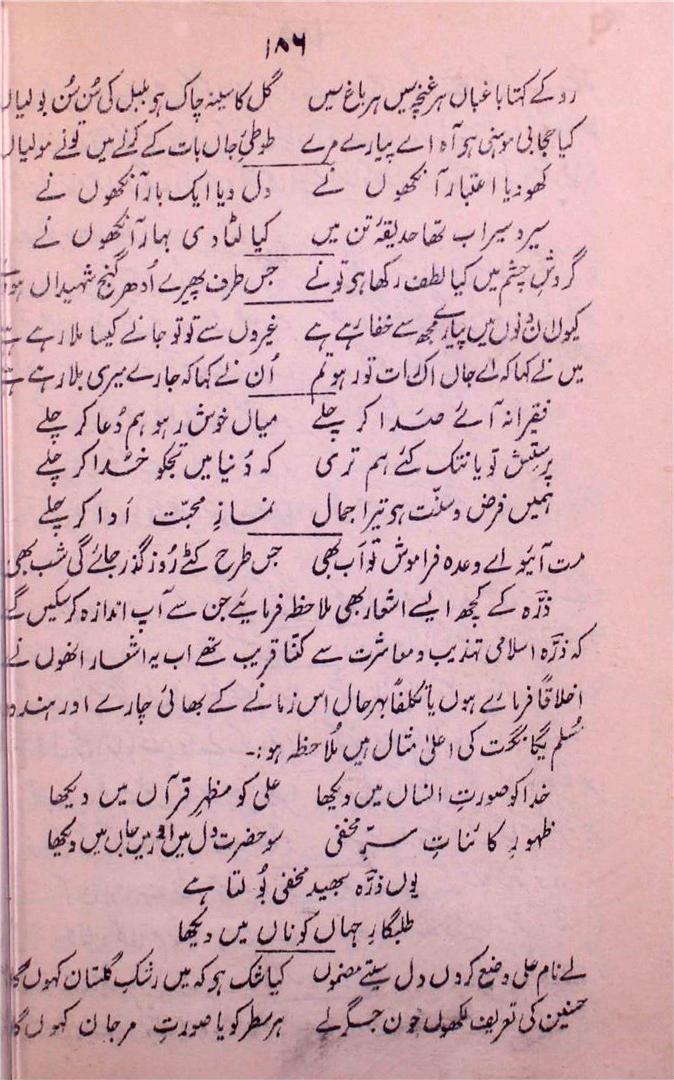 ۱۸۶
رو کے کہتا باغباں ہر غنچہ میں ہر باغ میں گل کا سینہ چاک ہو بلبل کی سُن سُن بولیاں
کیا عجابی موہنی ہو آہ اے پیارے مرے طوطیٔ جاں بات کے کہنے میں تونے مولیاں
کھودیا اعتبار آنکھوں نے دل دیا ایک بار آنکھوں نے
سیر و سیراب تھا حدیقۂ تن میں کیا لٹا دی بہار آنکھوں نے
گردشِ چشم میں کیا لطف رکھا ہو تونے جس طرف پھیرے اُدھر گنجِ شہیداں ہووے
کیوں ان دنوں میں پیارے مجھ سے خفا رہے ہے غیروں سے تو تو جانے کیسا ملا رہے ہے
میں نے کہا کہ اے جاں اک رات تو رہو تم اُن نے کہا کہ جارے میری بلا رہے ہے
فقیرانہ آئے صدا کر چلے میاں خوش رہو ہم دُعا کر چلے
پرستش تو یا نتک کئے ہم تری کہ دُنیا میں تجکو خُدا کر چلے
ہمیں فرض و سنّت ہو تیرا جمال نمازِ محبّت ادا کر چلے
مت آئیو اے وعدہ فراموش تو اب بھی جس طرح کٹے رُوز گذر جائے گی شب بھی
ذرّہ کے کچھ ایسے اشعار بھی ملاحظہ فرمایئے جن سے آپ اندازہ کر سکیں گے
کہ ذرّہ اسلامی تہذیب و معاشرت سے کتنا قریب تھے اب یہ اشعار انھوں نے
اخلاقاً فرمائے ہوں یا تکلفاً بہر حال اس زمانے کے بھائی چارے اور ہندو
مُسلم یگانگت کی اعلیٰ مثال ہیں مُلاحظہ ہو:۔
خدا کو صورتِ انساں میں دیکھا علی کو مظہرِ قرآں میں دیکھا
ظہورِ کائناتِ سرِّ مخفی سو حضرت دل میں اور میں جاں میں دیکھا
یوں ذرّہ بھید مخفی بُولتا ہے
طلبگارِ جہاں کوناں میں دیکھا
لے نام علی وضع کروں دل سیتے مضموں کیا شک ہو کہ میں رشکِ گلستان کہوں گا
حسنین کی تعریف لکھوں خونِ جگر لے ہر سطر کو یا صورتِ مرجان کہوں گا